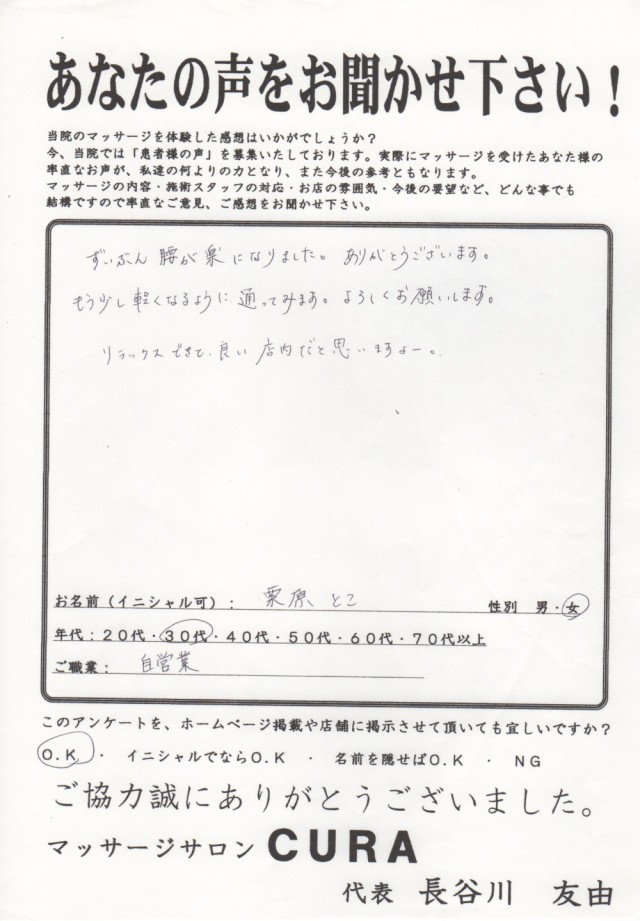 あなたの声をお聞かせ下さい！
当院のマッサージを体験した感想はいかがでしょうか？
今、当院では「患者様の声」を募集いたしております。実際にマッサージを受けたあなた様の
率直なお声が、私達の何よりの力となり、また今後の参考ともなります。
マッサージの内容・施術スタッフの対応・お店の雰囲気・今後の要望など、どんな事でも
結構ですので率直なご意見、ご感想をお聞かせ下さい。
ずいぶん 腰が楽になりました。ありがとうございます。
もう少し軽くなるように 通ってみます。よろしくお願いします。
リラックスできて 良い 店内だと思いますよー。
お名前（イニシャル可）： 栗原 とこ 性別 男・女
年代：２０代・３０代・４０代・５０代・６０代・７０代以上
ご職業： 自営業
このアンケートを、ホームページ掲載や店舗に掲示させて頂いても宜しいですか？
Ｏ.Ｋ ・ イニシャルでならＯ.Ｋ ・ 名前を隠せばＯ.Ｋ ・ ＮＧ
ご協力誠にありがとうございました。
マッサージサロン ＣＵＲＡ
代表 長谷川 友由